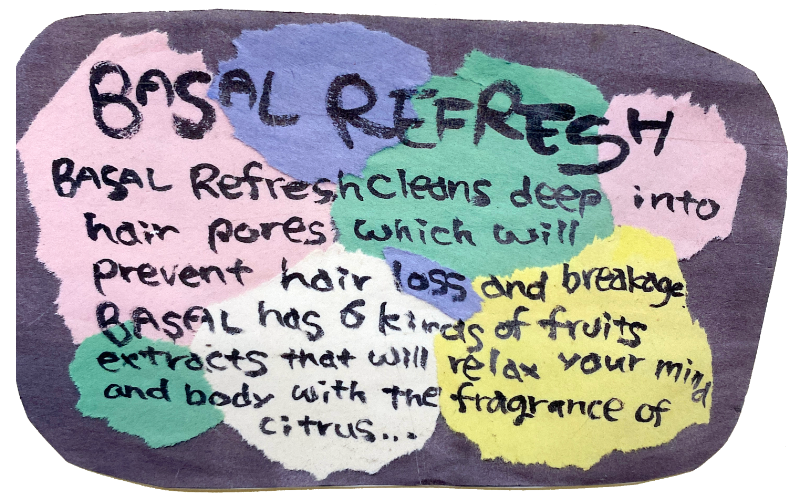 BASAL REFRESH
BASAL Refresh cleans deep into
hair pores which will
prevent hair loss and breakage
BASAL has 6 kinds of fruits
extracts that will relax your mind
and body with the fragrance of
citrus...